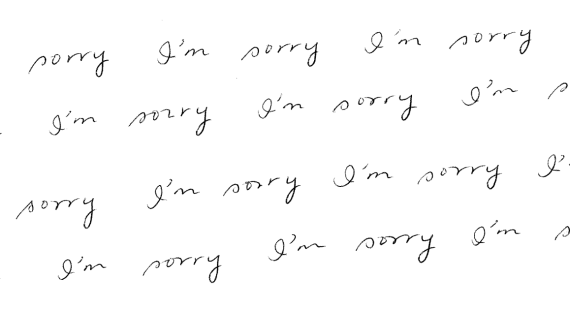 sorry I'm sorry I'm sorry
I'm sorry I'm sorry I'm s
sorry I'm sorry I'm sorry I'
I'm sorry I'm sorry I'm s